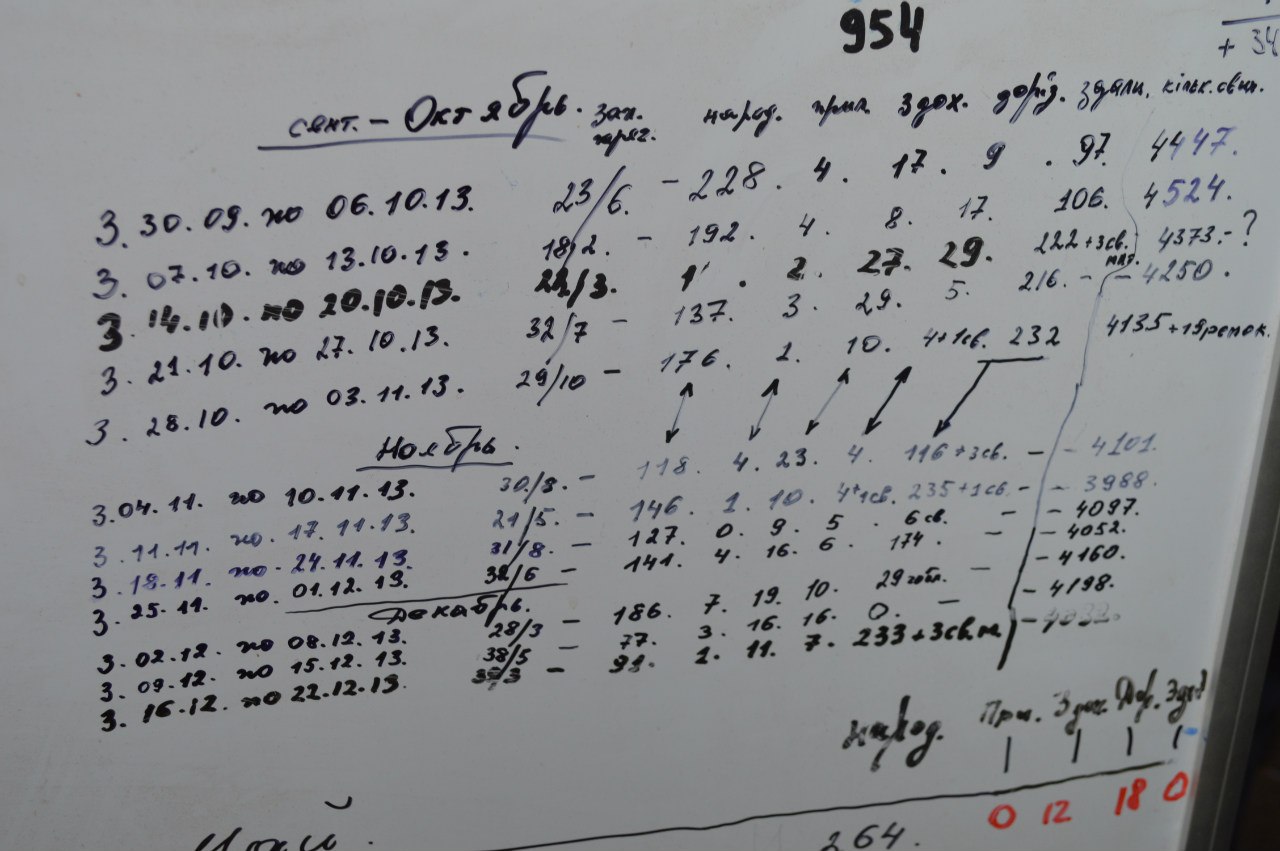 954
+ 34
сент. - Октябрь. зах. народ. прип. здох. доріз. здали, кільк. свин.
З. 30.09. по 06.10.13. 23/6. - 228. 4. 17. 9. 97. 4447.
З. 07.10. по 13.10.13. 18/2. - 192. 4. 8. 17. 106. 4524.
З. 14.10 по 20.10.13. 24/3. 1 . 2. 27. 29. 222 + 3 св. мат. 4373. - ?
З. 21.10. по 27.10.13. 32/7 - 137. 3. 29. 5. 216. - - 4250.
З. 28.10. по 03.11.13. 29/10 - 176. 1. 10. 4+1св. 232 4135 + 19 ремок.
Ноябрь.
З. 04.11. по 10.11.13. 30/8. - 118. 4. 23. 4. 116 + 3 св. - - 4101.
З. 11.11. по. 17.11.13. 21/5. - 146. 1. 10. 4+1св. 235 + 1св. - - 3988.
З. 18.11. по 24.11.13. 31/8. - 127. 0. 9. 5. 6 св. - - 4097.
З. 25.11. по. 01.12.13. 32/6 - 141. 4. 16. 6. 174. - - 4052.
Декабрь.
З. 02.12. по 08.12.13. 28/3 - 186. 7. 19. 10. 29 - - 4160.
З. 09.12. по 15.12.13. 38/5 77. 3. 16. 16. 0. - - 4198.
З. 16.12. по 22.12.13. - 91. 2. 11. 7. 233 + 3 св. м - 4032.
народ. При. Здох. Дор.
0 12 18 0
264.